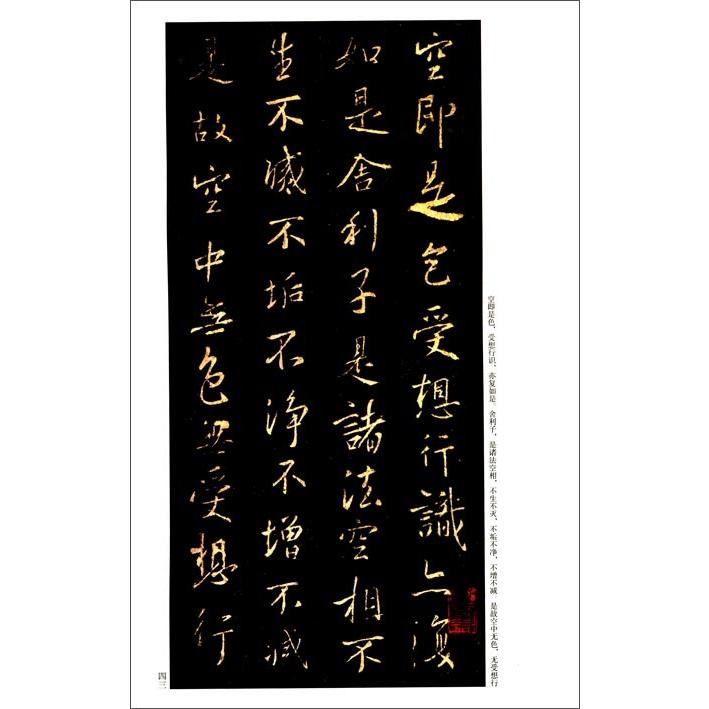 空即是色，受想行识，亦复如是。舍利子，是诸法空相，不生不灭，不垢不净，不增不减。是故空中无色，无受想行
空即是色受想行識亦復
如是舍利子是諸法空相不
生不滅不垢不淨不增不減
是故空中無色無受想行
四三